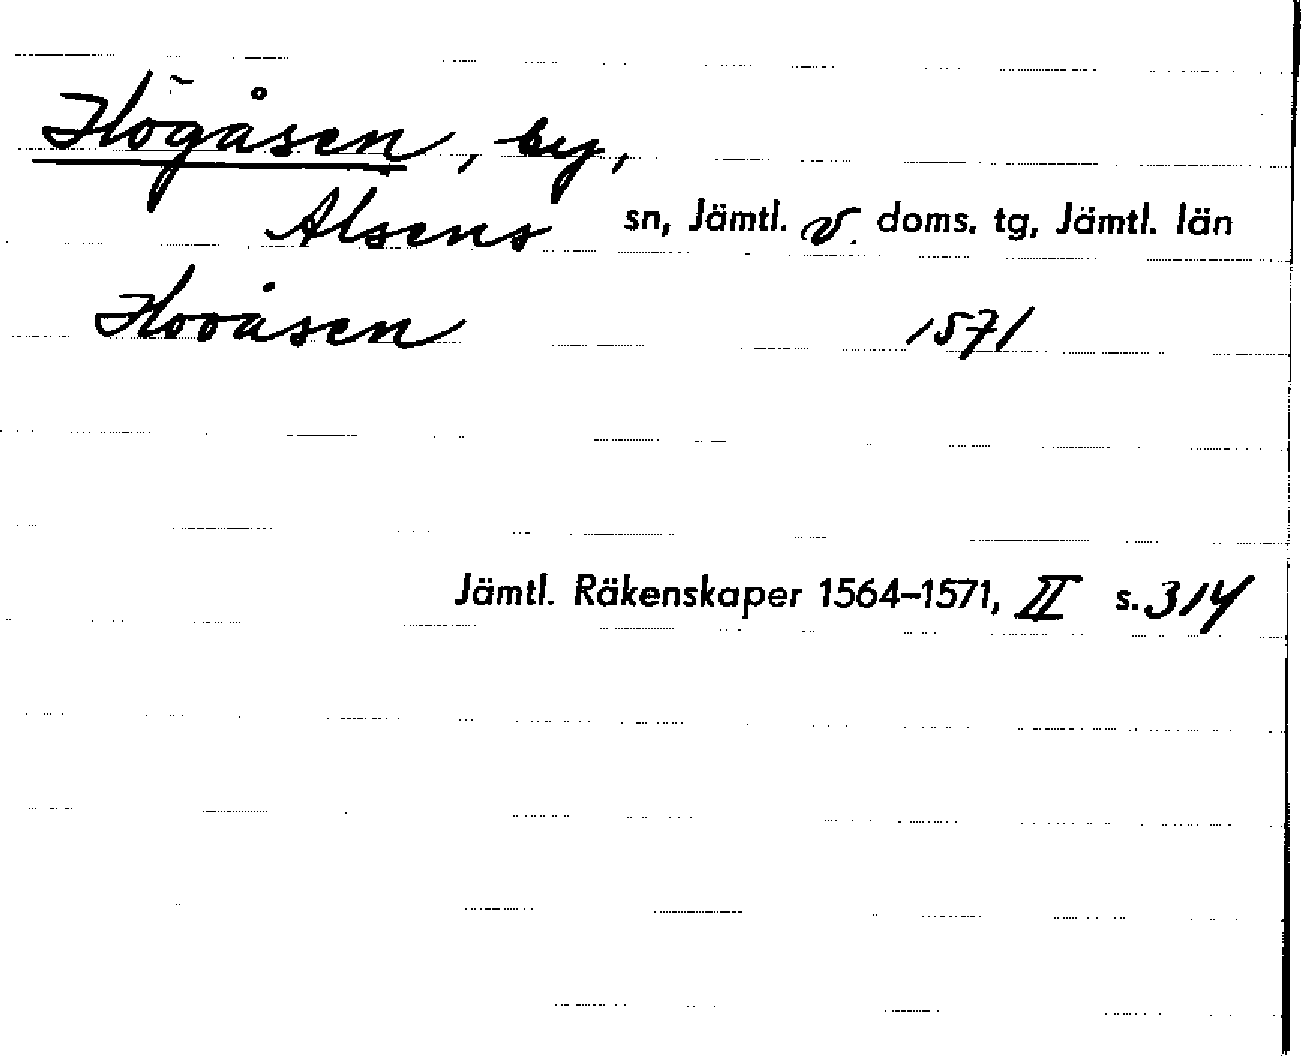 Högåsen, by,
Alsens sn, Jämtl. v. doms. tg, Jämtl. län
Hooåsen 1571
Jämtl. Räkenskaper 1564–1571, II s. 314